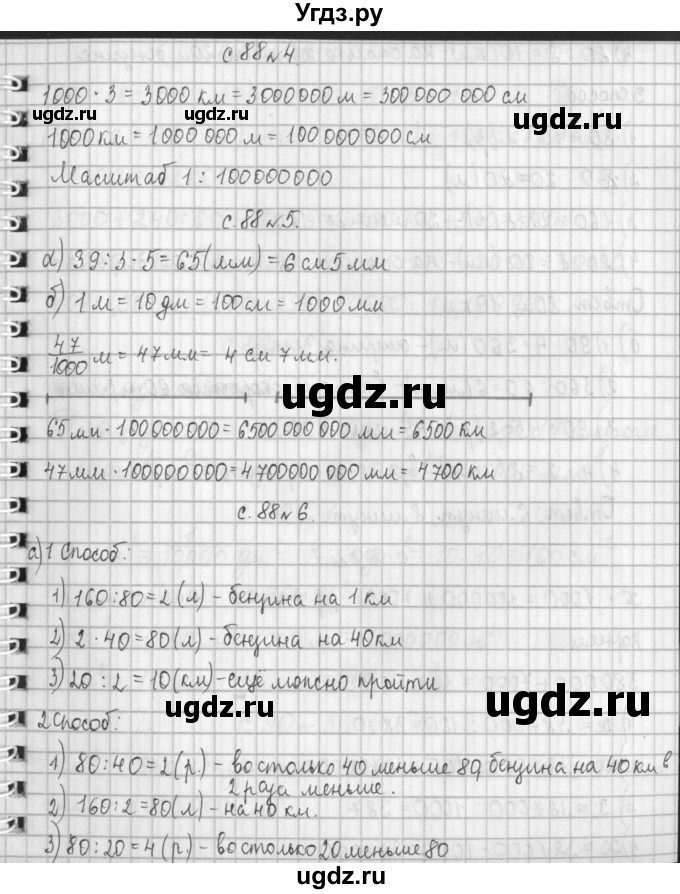 Угдз.ру
с.88 №4.
1000 · 3 = 3000 км = 3000000 м = 300 000 000 см
ugdz.ru
ugdz.ru
ugdz.ru
1000 км = 1000 000 м = 100 000 000 см
Масштаб 1 : 100000000
с.88 №5.
а) 39 : 3 · 5 = 65 (мм) = 6 см 5 мм
б) 1 м = 10 дм = 100 см = 1000 мм
47/1000 м = 47 мм = 4 см 7 мм.
ugdz.ru
65 мм · 100 000 000 = 6500 000 000 мм = 6500 км
47 мм · 100000000 = 4700000 000 мм = 4700 км
с. 88 №6.
а) 1 Способ:
1) 160 : 80 = 2 (л) - бензина на 1 км
2) 2 · 40 = 80 (л) - бензина на 40 км
3) 20 : 2 = 10 (км) - ещё можно пройти
ugdz.ru
ugdz.ru
ugdz.ru
2 Способ:
1) 80 : 40 = 2 (р.) - во столько 40 меньше 80 бензина на 40 км в
2 раза меньше.
2) 160 : 2 = 80 (л) - на 40 км.
3) 80 : 20 = 4 (р) - во столько 20 меньше 80
ugdz.ru